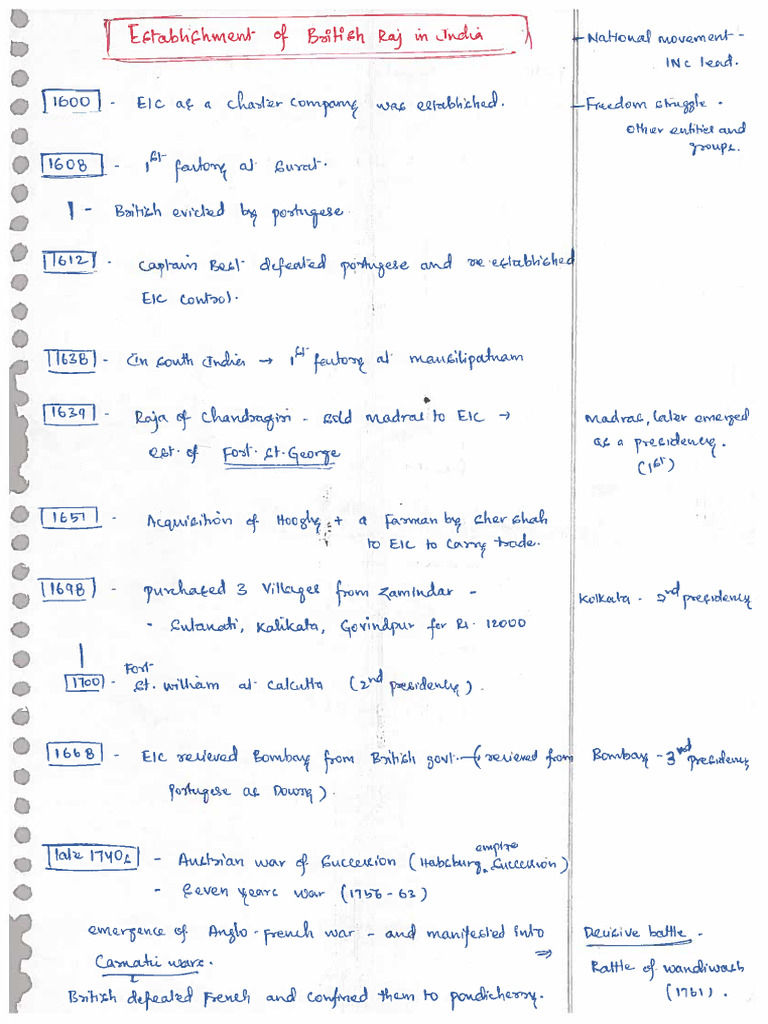 Establishment of British Raj in India
- National movement -
INC lead.
1600 - EIC as a charter company was established.
- Freedom struggle -
other entities and
groups.
1608 - 1st factory at Surat.
- British evicted by portugese.
1612 - Captain Best defeated portugese and re established
EIC control.
1638 - In South India → 1st factory at mausilipatnam
1639 - Raja of Chandragiri - sold madras to EIC →
est. of Fort. St. George
Madras, later emerged
as a presidency.
(1st)
1651 - Acquisition of Hoogly + a Farman by Sher Shah
to EIC to carry trade.
1698 - purchased 3 villages from zamindar -
- Sutanati, Kalikata, Govindpur for Rs. 12000
Kolkata - 2nd presidency
1700 - Fort
St. william at Calcutta (2nd presidency).
1668 - EIC recieved Bombay from British govt. - (recieved from
portugese as Dowry).
Bombay - 3rd presidency
late 1740s - Austrian war of Succession (Habsburg empire Succession)
- Seven years war (1756-63)
emergence of Anglo-french war - and manifested into ⇒
Carnatic wars.
British defeated French and confined them to pondicherry.
Decisive battle -
Battle of wandiwash
(1761).